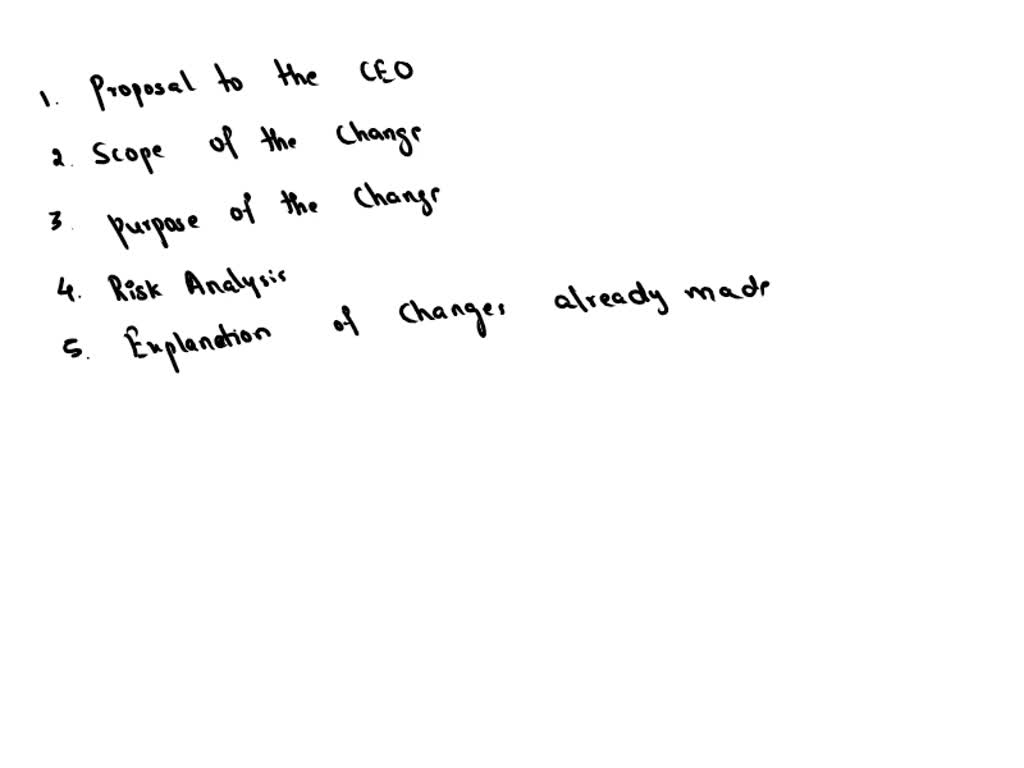 1. Proposal to the CEO
2. Scope of the Change
3. purpose of the Change
4. Risk Analysis
5. Explanation of Changes already made